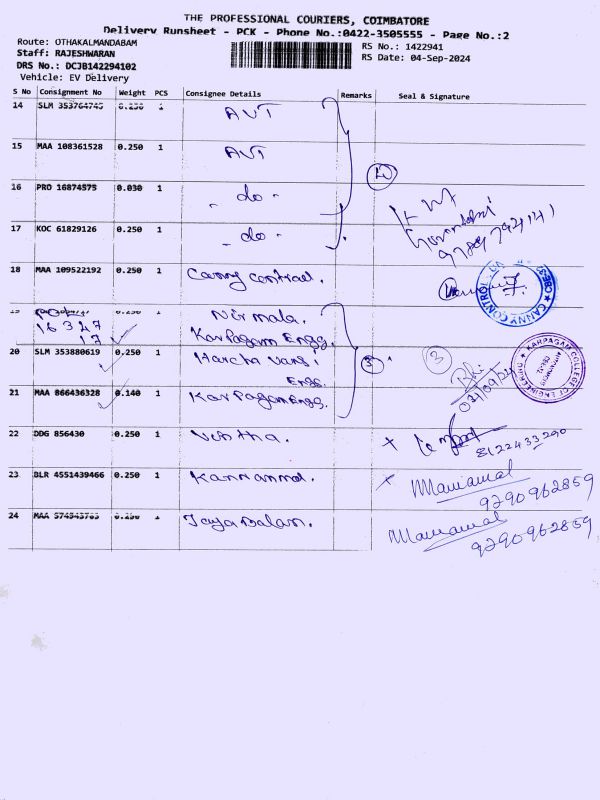 THE PROFESSIONAL COURIERS, COIMBATORE
Delivery Runsheet - PCK - Phone No.:0422-3505555 - Page No.:2
Route: OTHAKALMANDABAM
RS No.: 1422941
Staff: RAJESHWARAN
RS Date: 04-Sep-2024
DRS No.: DCJB142294102
Vehicle: EV Delivery
S No Consignment No Weight PCS Consignee Details Remarks Seal & Signature
14 SLM 353764745 0.250 1 AVT
15 MAA 108361528 0.250 1 AVT
16 PRO 16874575 0.030 1 - do -
17 KOC 61829126 0.250 1 - do -
9789794141
18 MAA 109522192 0.250 1 Canny Control.
CANNY CONTROL
19 0.250 1 Nirmala.
16347
17 Karpagam Engg.
20 SLM 353880619 0.250 1 Harsha Vars i
Engg.
3
3
KARPAGAM COLLEGE OF ENGINEERING
21 MAA 866436328 0.140 1 Karpagam Engg.
22 DDG 856430 0.250 1
8122433290
23 BLR 4551439466 0.250 1 Kannammal.
9290962859
24 MAA 574543763 0.250 1 Jaya Balan.
9290962859